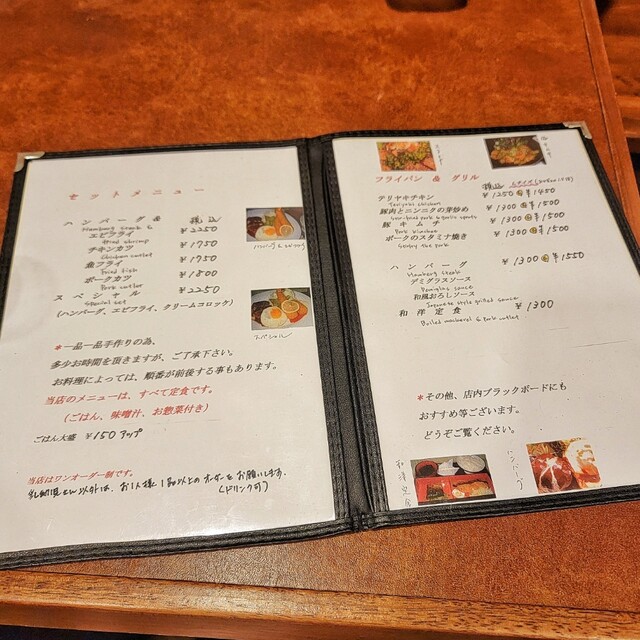 セットメニュー
ハンバーグ & 税込
Hamburg steak &
エビフライ ¥2250
fried shrimp
チキンカツ ¥1950
Chicken cutlet
魚フライ ¥1950
Fried fish
ポークカツ ¥1800
Pork cutlet
スペシャル ¥2250
Special set
(ハンバーグ、エビフライ、クリームコロッケ)
ハンバーグ&エビフライ
スペシャル
*一品一品手作りの為、
多少お時間を頂きますが、ご了承下さい。
お料理によっては、順番が前後する事もあります。
当店のメニューは、すべて定食です。
(ごはん、味噌汁、お惣菜付き)
ごはん大盛 ¥150アップ
当店はワンオーダー制です。
乳幼児さん以外は、お1人様1品以上のオーダーをお願いします。
(ドリンク可)
フライパン & グリル
税込 Lサイズ
テリヤキチキン ¥1250 ¥1450
Teriyaki chicken
豚肉とニンニクの芽炒め ¥1300 ¥1500
豚キムチ ¥1300 ¥1500
Pork kimchee
ポークのスタミナ焼き ¥1300 ¥1500
ハンバーグ ¥1300 ¥1550
Hamburg steak
デミグラスソース
Demiglas sauce
和風おろしソース
Japanese style grilled sauce
和洋定食 ¥1300
Boiled mackerel & pork cutlet
*その他、店内ブラックボードにも
おすすめ等ございます。
どうぞご覧ください。
和洋定食
ハンバーグ